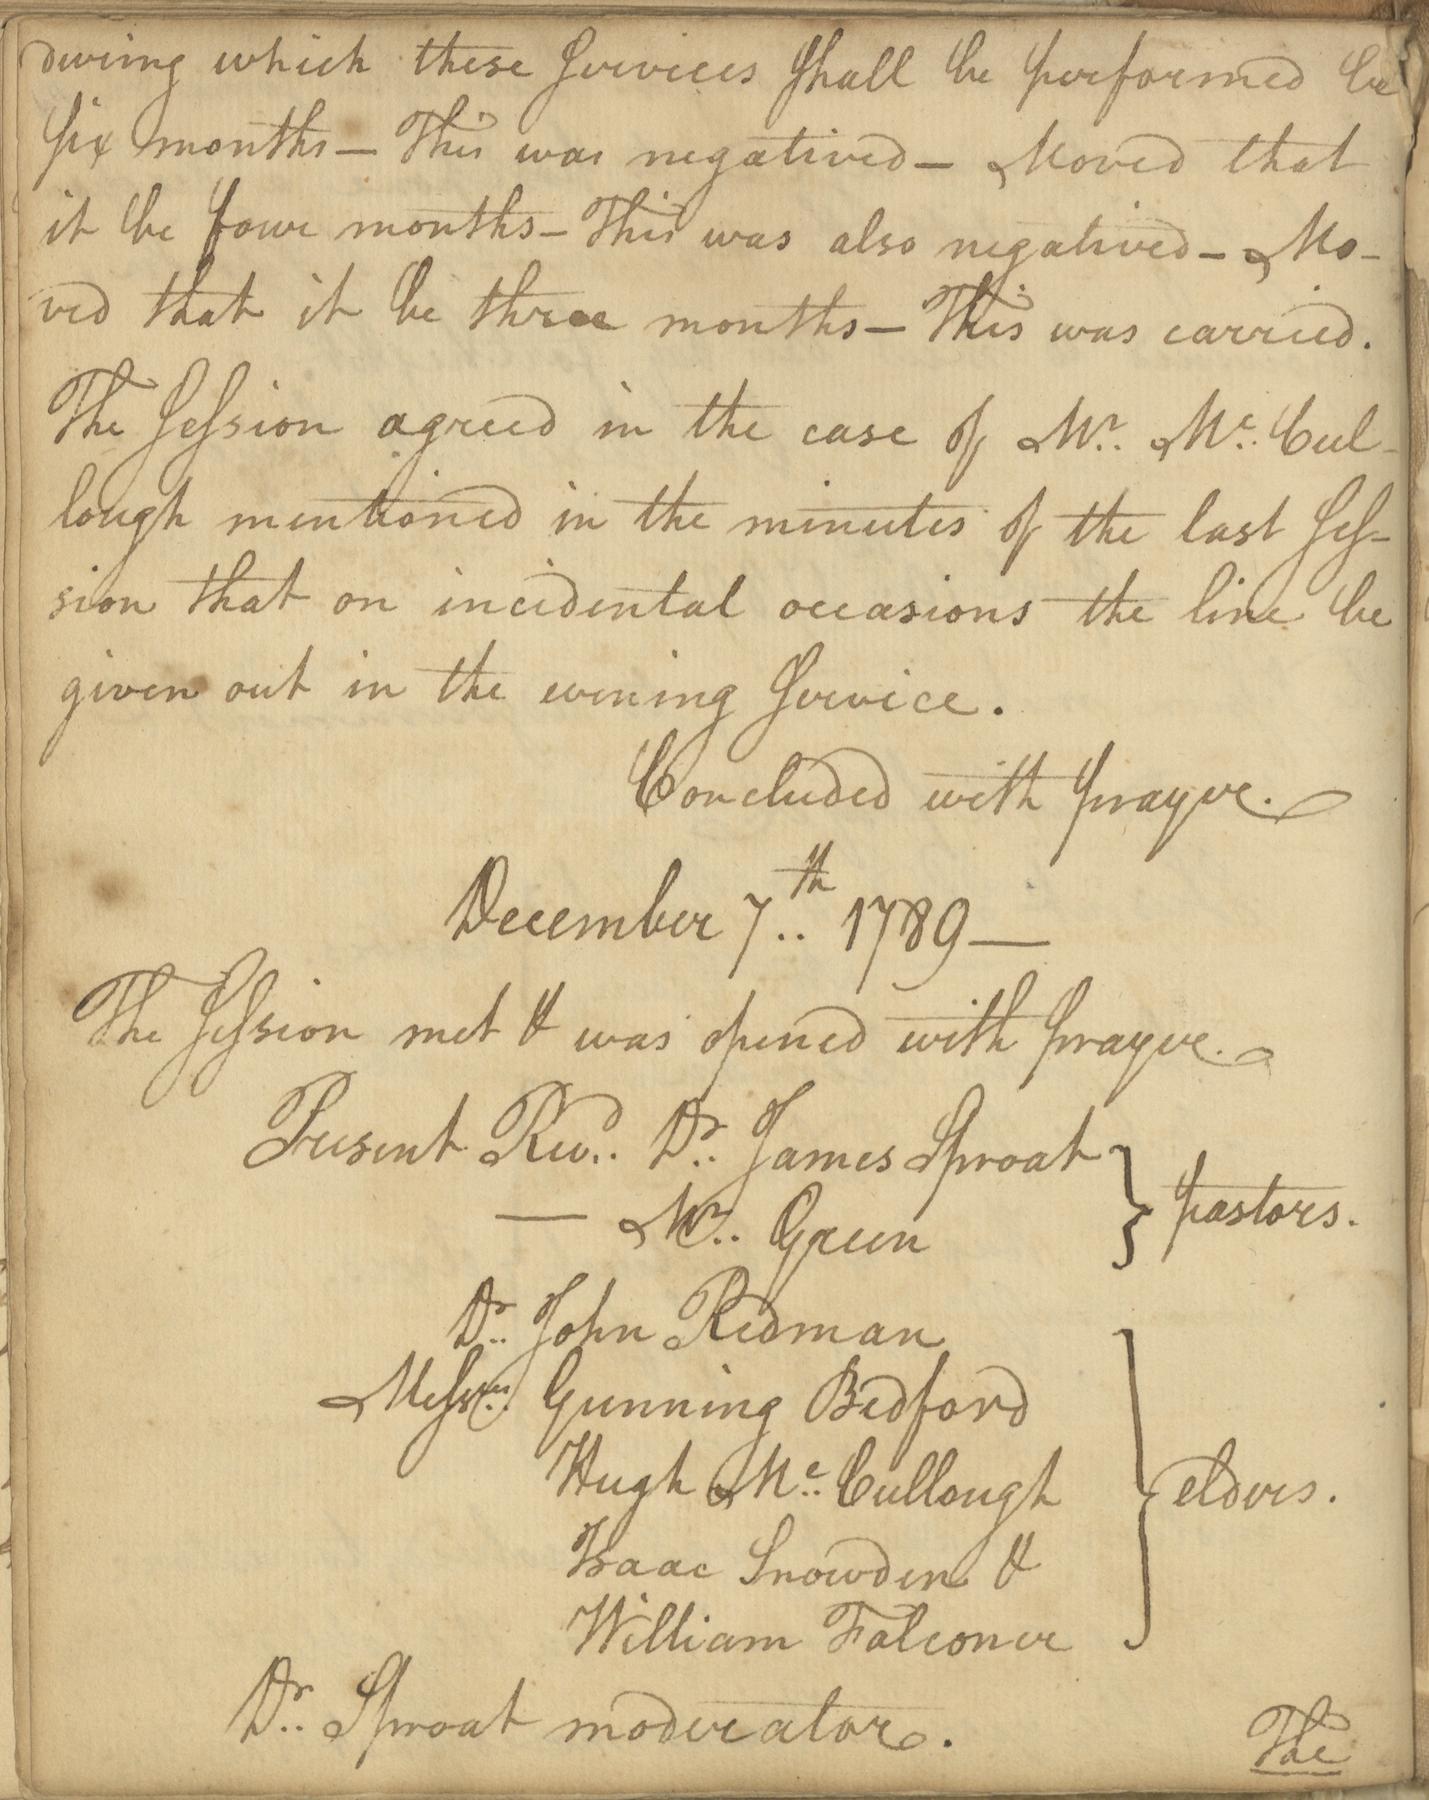 during which these services shall be performed be
six months — This was negatived — Moved that
it be four months — This was also negatived — Mo-
ved that it be three months — This was carried.
The Session agreed in the case of Mr. Mc. Cul-
lough mentioned in the minutes of the last Ses-
sion that on incidental occasions the line be
given out in the evening service.
Concluded with prayer.
December 7th 1789 —
The Session met & was opened with prayer.
Present Revd. Dr. James Sproat } pastors.
— Mr. Green
Dr. John Redman
Messrs. Gunning Bedford
Hugh Mc. Cullough } elders.
Isaac Snowden &
William Falconer
Dr. Sproat moderator.
The